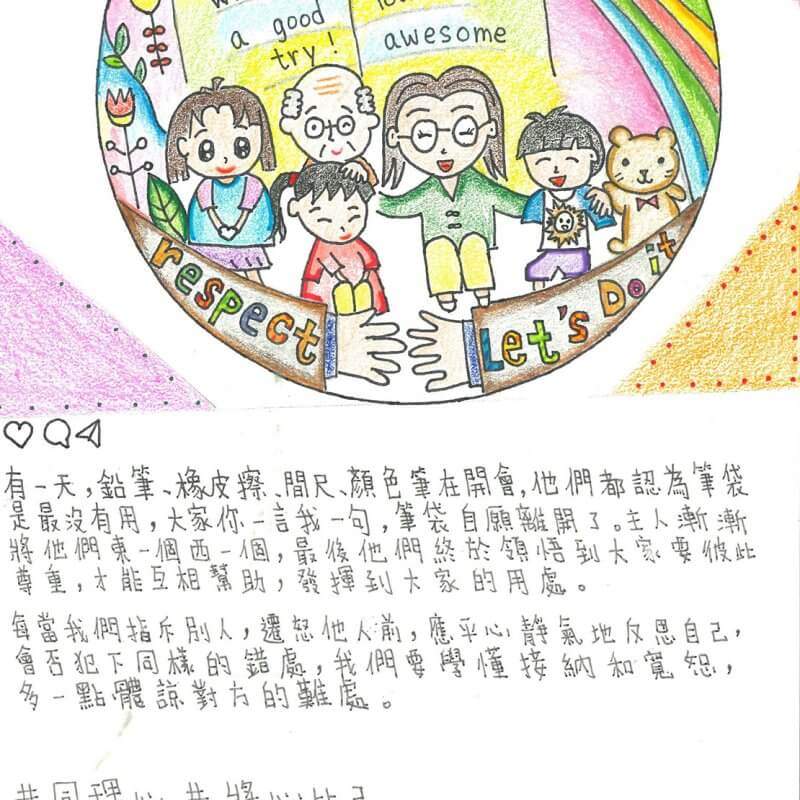 a good
try!
awesome
respect
Let's Do it
有一天,鉛筆、橡皮擦、間尺、顏色筆在開會,他們都認為筆袋
是最沒有用,大家你一言我一句,筆袋自願離開了。主人漸漸
將他們東一個西一個,最後他們終於領悟到大家要彼此
尊重,才能互相幫助,發揮到大家的用處。
每當我們指斥別人,遷怒他人前,應平心靜氣地反思自己,
會否犯下同樣的錯處,我們要學懂接納和寬恕,
多一點體諒對方的難處。